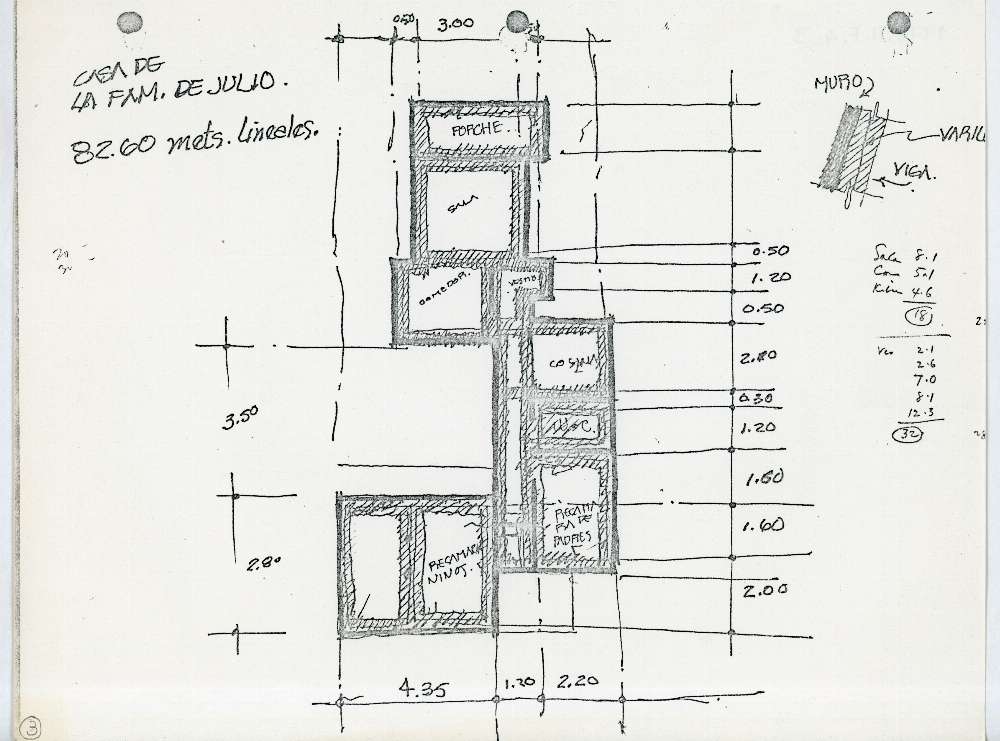 0.50 3.00
CASA DE
LA FAM. DE JULIO.
82.60 mets. lineales.
MURO
VARIL
VIGA.
PORCHE.
SALA
COMEDOR.
VESTIB.
COSINA
W.C.
RECAMA
RA DE
PADRES
RECAMARA
NIÑOS.
0.50
1.20
0.50
2.80
0.30
1.20
1.60
1.60
2.00
3.50
2.80
4.35 1.20 2.20
Sala 8.1
Com 5.1
4.6
18
2.1
2.6
7.0
8.1
12.3
32
3